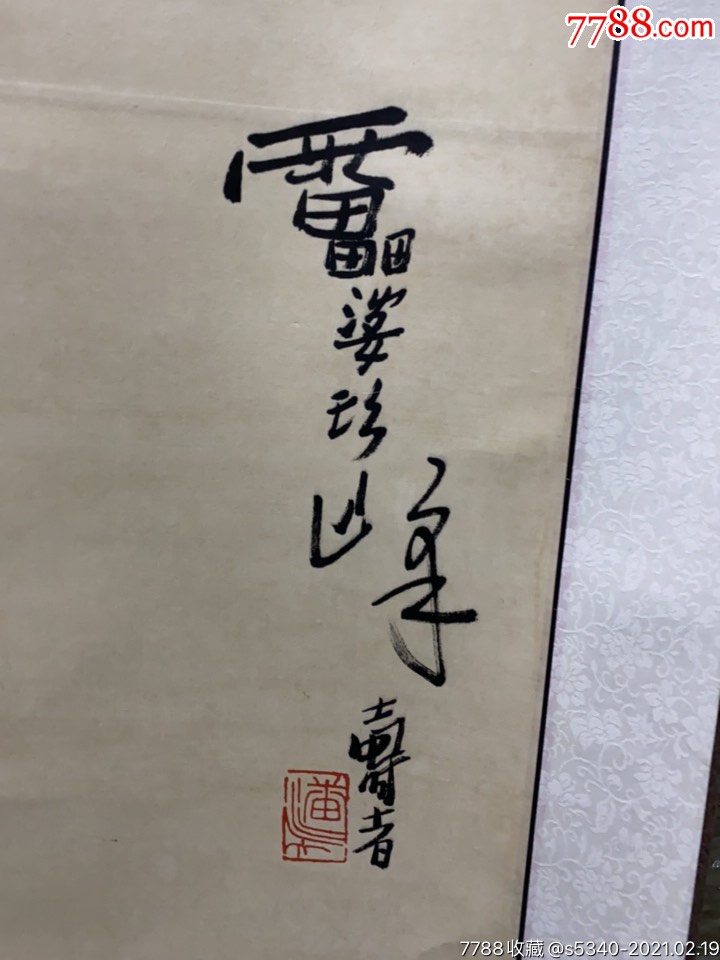 7788.com
靁婆頭峰
壽者
7788收藏 @s5340-2021.02.19